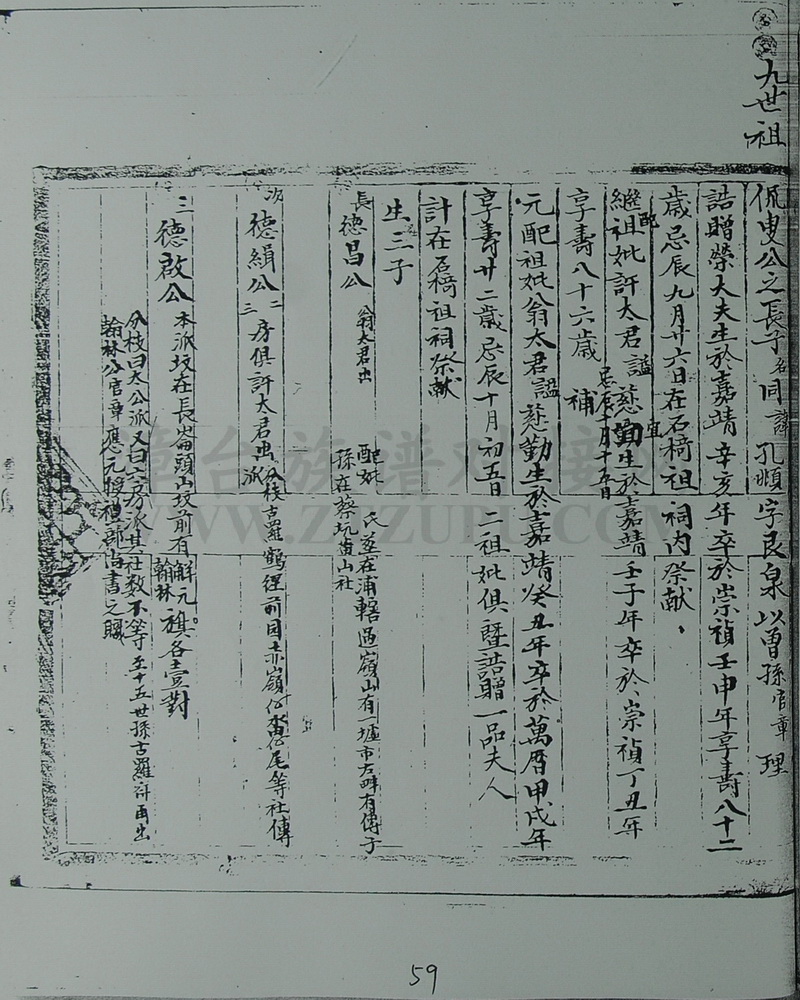 九世祖
侃叟公之長子名同諱孔順字良泉以曾孫官章理
誥贈榮大夫生於嘉靖辛亥年卒於崇禎壬申年享壽八十二
歲忌辰九月廿六日在石椅祖祠內祭献
繼配祖妣許太君謚慈勤生於嘉靖壬子年卒於崇禎丁丑年
享壽八十六歲 補忌辰十月十五日
元配祖妣翁太君謚慈勤生於嘉靖癸丑年卒於萬曆甲戌年
享壽廿二歲忌辰十月初五日 二祖妣俱暨誥贈一品夫人
計在石椅祖祠祭献
生三子
長德昌公 翁太君出 配妣 氏塟在浦轄過嶺山有一墟市左畔有傳子
孫在蔡坑 山社
次德絹公 二三房俱許太君出 分枝古羅鶴徑前園赤嶺 尾等社傳派
三德啟公 本派坟在長崙頭山坟前有解元翰林旗各壹對
分枝曰太公派又曰六房派其社数不等至十五世孫古羅 再出
翰林公官章應元授禮部尚書之職
章台族谱
WWW.ZTZUPU.COM
59